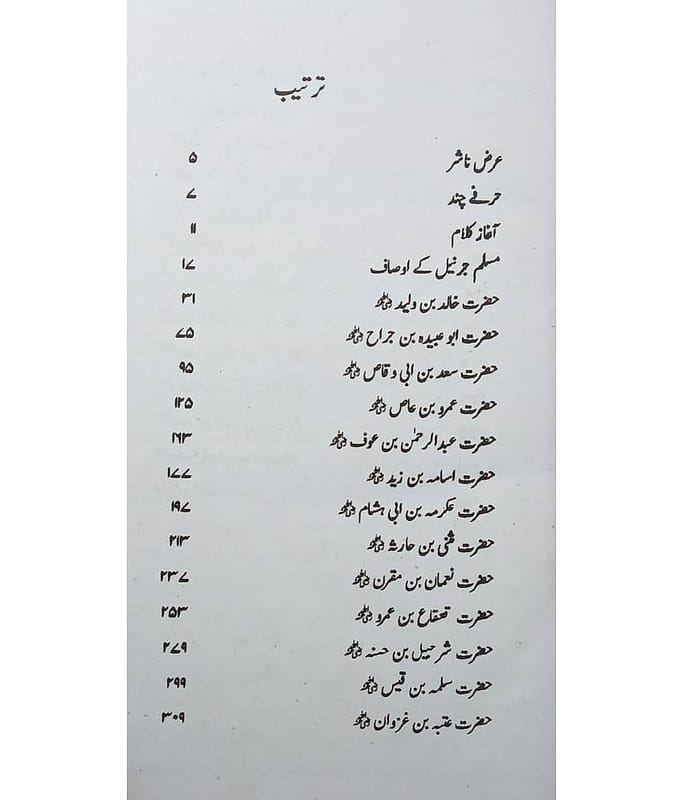 ترتیب
عرض ناشر ۵
حرفے چند ۷
آغاز کلام ۱۱
مسلم جرنیل کے اوصاف ۱۷
حضرت خالد بن ولید رضی اللہ عنہ ۳۱
حضرت ابو عبیدہ بن جراح رضی اللہ عنہ ۷۵
حضرت سعد بن ابی وقاص رضی اللہ عنہ ۹۵
حضرت عمرو بن عاص رضی اللہ عنہ ۱۲۵
حضرت عبدالرحمٰن بن عوف رضی اللہ عنہ ۱۶۳
حضرت اسامہ بن زید رضی اللہ عنہ ۱۷۷
حضرت عکرمہ بن ابی ہشام رضی اللہ عنہ ۱۹۷
حضرت مثنی بن حارثہ رضی اللہ عنہ ۲۱۳
حضرت نعمان بن مقرن رضی اللہ عنہ ۲۳۷
حضرت قعقاع بن عمرو رضی اللہ عنہ ۲۵۳
حضرت شرحبیل بن حسنہ رضی اللہ عنہ ۲۷۹
حضرت سلمہ بن قیس رضی اللہ عنہ ۲۹۹
حضرت عتبہ بن غزوان رضی اللہ عنہ ۳۰۹